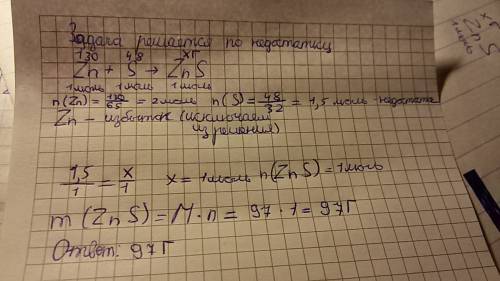 Задача решается по недостатку
130 48 хг
Zn + S → ZnS
1моль 1моль 1моль
n(Zn) = 130/65 = 2 моль n(S) = 48/32 = 1,5 моль - недостаток
Zn - избыток (исключаем
из решения)
1,5/1 = x/1 x = 1моль n(ZnS) = 1моль
m(ZnS) = M·n = 97·1 = 97г
Ответ: 97г
хг
ZnS
1моль